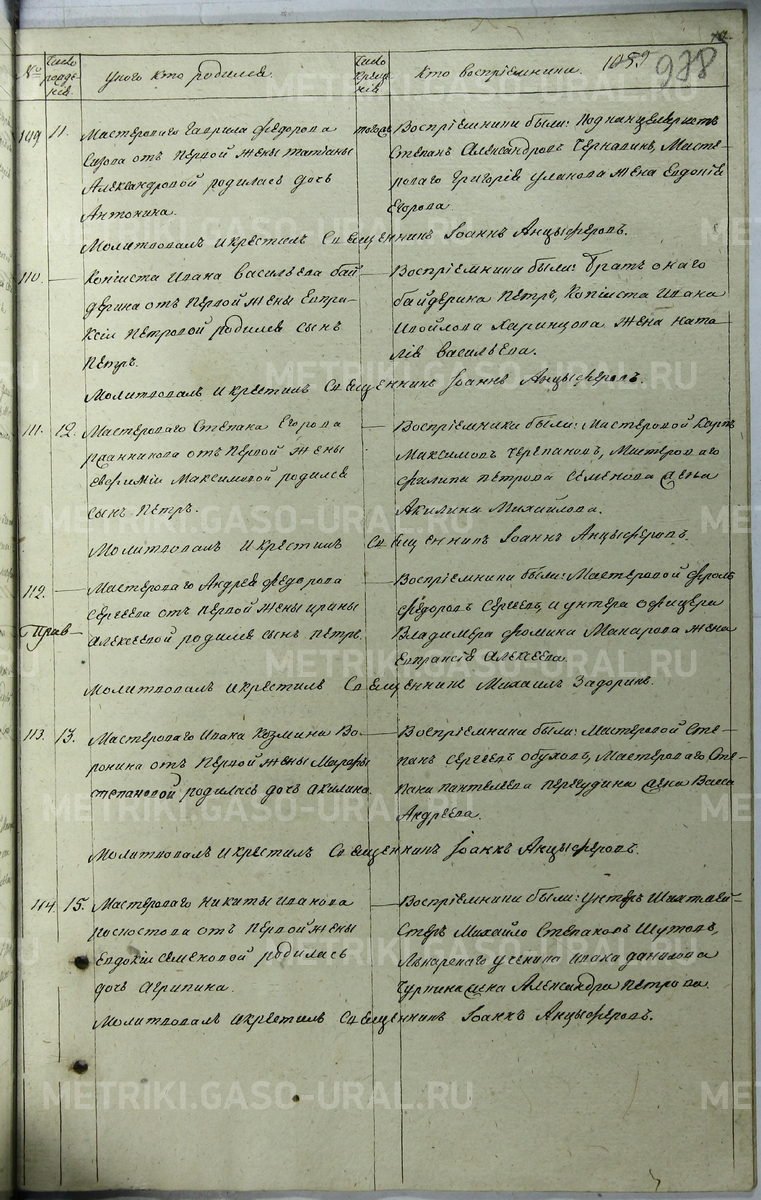 1059
978
№
Число рожденія.
У кого кто родился.
Число крещенія
Кто воспріемники.
109 11. Мастероваго Гаврила Федорова
Сизова отъ первой жены татіаны
Александровой родилась дочь
Антонина.
тогожъ
Воспріемники были: Подканцеляристъ
Степанъ Александровъ Черкасинъ, Масте-
роваго Григорія Уланова жена Евдокія
Егорова.
Молитвовалъ и крестилъ Священникъ Іоаннъ Анцыферовъ.
110. — Копіиста Ивана Васильева Бай
дерина отъ первой жены Евпра-
ксіи Петровой родился сынъ
Петръ.
— Воспріемники были: братъ онаго
байдерина Петръ, Копіиста Ивана
Измайлова Харинцова жена Ната-
лія Васильева.
Молитвовалъ и крестилъ Священникъ Іоаннъ Анцыферовъ.
111. 12. Мастероваго Степана Егорова
отъ первой жены
Евфиміи Максимовой родился
сынъ Петръ.
— Воспріемники были: Мастеровой Карпъ
Максимовъ Черепановъ, Мастероваго
Филипа Петрова Семенова жена
Акилина Михайлова.
Молитвовалъ и крестилъ Священникъ Іоаннъ Анцыферовъ.
112. — Мастероваго Андрея Федорова
Сергеева отъ первой жены ирины
Алексеевой родился сынъ Петръ.
Прав—
— Воспріемники были: Мастеровой Фролъ
Федоровъ Сергеевъ, и унтера офицера
Владимера Фомина Макарова жена
Евпраксія Алексеева.
Молитвовалъ и крестилъ Священникъ Михаилъ Задоринъ.
113. 13. Мастероваго Ивана Козмина Во-
ронина отъ первой жены Марфы
степановой родилась дочь акилина.
— Воспріемники были: Мастеровой Сте-
панъ Сергеевъ обуховъ, Мастероваго Сте-
пана Пантелеева Перегудина жена Васса
Андреева.
Молитвовалъ и крестилъ Священникъ Іоаннъ Анцыферовъ.
114. 15. Мастероваго Никиты Иванова
Роспопова отъ первой жены
Евдокіи Семеновой родилась
дочь Агрипина.
— Воспріемники были: Унтеръ Шахтмей-
стеръ Михайло Степановъ Шутовъ,
Лекарскаго ученика Ивана данилова
Чуркина жена Александра Петрова.
Молитвовалъ и крестилъ Священникъ Іоаннъ Анцыферовъ.
METRIKI.GASO-URAL.RU
METRIKI.GASO-URAL.RU
METRIKI.GASO-URAL.RU
METRIKI.GASO-URAL.RU
METRIKI.GASO-URAL.RU
METRIKI.GASO-URAL.RU
METRIKI.GASO-URAL.RU